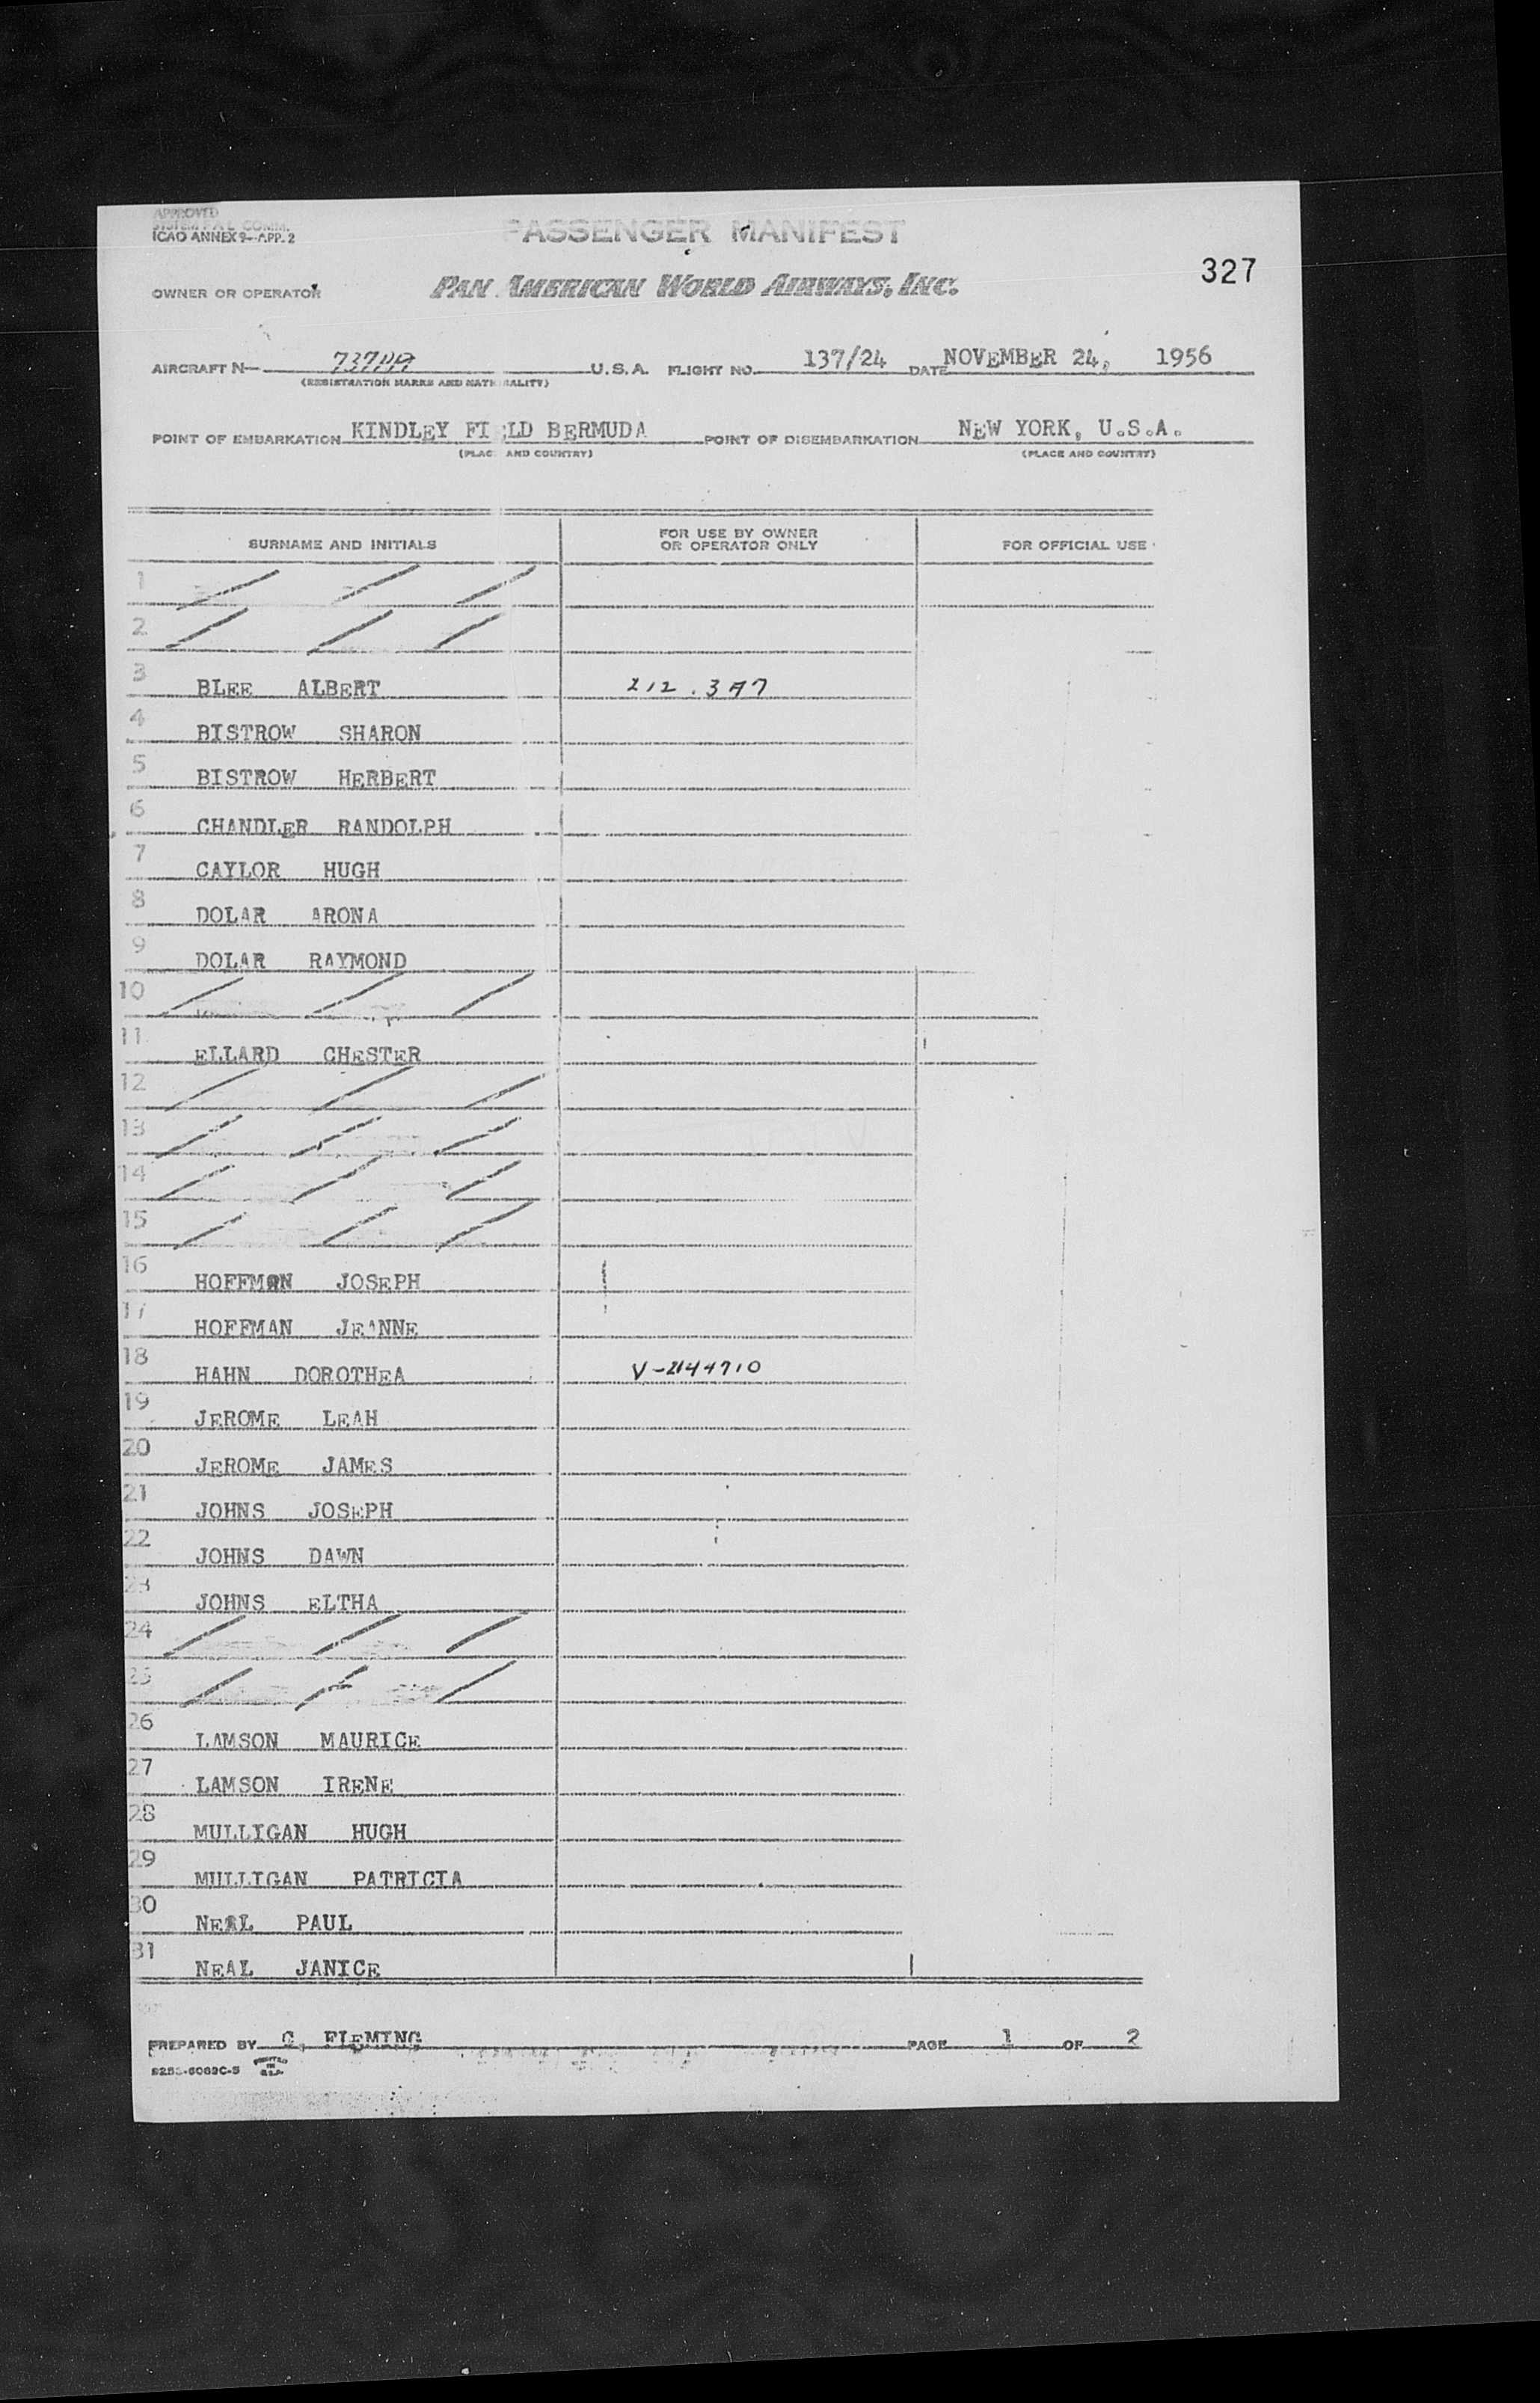 APPROVED
ICAO ANNEX 9-APP. 2
PASSENGER MANIFEST
327
OWNER OR OPERATOR PAN AMERICAN WORLD AIRWAYS, INC.
AIRCRAFT N— U.S.A. FLIGHT NO. 137/24 DATE NOVEMBER 24, 1956
(REGISTRATION MARKS AND NATIONALITY)
POINT OF EMBARKATION KINDLEY FIELD BERMUDA POINT OF DISEMBARKATION NEW YORK, U.S.A.
(PLACE AND COUNTRY) (PLACE AND COUNTRY)
SURNAME AND INITIALS FOR USE BY OWNER OR OPERATOR ONLY FOR OFFICIAL USE
1 / / /
2 / / /
3 BLEE ALBERT 212.397
4 BISTROW SHARON
5 BISTROW HERBERT
6 CHANDLER RANDOLPH
7 CAYLOR HUGH
8 DOLAR ARONA
9 DOLAR RAYMOND
10 / / /
11 ELLARD CHESTER
12 / / /
13 / / /
14 / / /
15 / / /
16 HOFFMAN JOSEPH
17 HOFFMAN JEANNE
18 HAHN DOROTHEA V-2144710
19 JEROME LEAH
20 JEROME JAMES
21 JOHNS JOSEPH
22 JOHNS DAWN
23 JOHNS ELTHA
24 / / /
25 / / /
26 LAMSON MAURICE
27 LAMSON IRENE
28 MULLIGAN HUGH
29 MULLIGAN PATRICIA
30 NEAL PAUL
31 NEAL JANICE
PREPARED BY C. FLEMING PAGE 1 OF 2
PRINTED IN U.S.A.